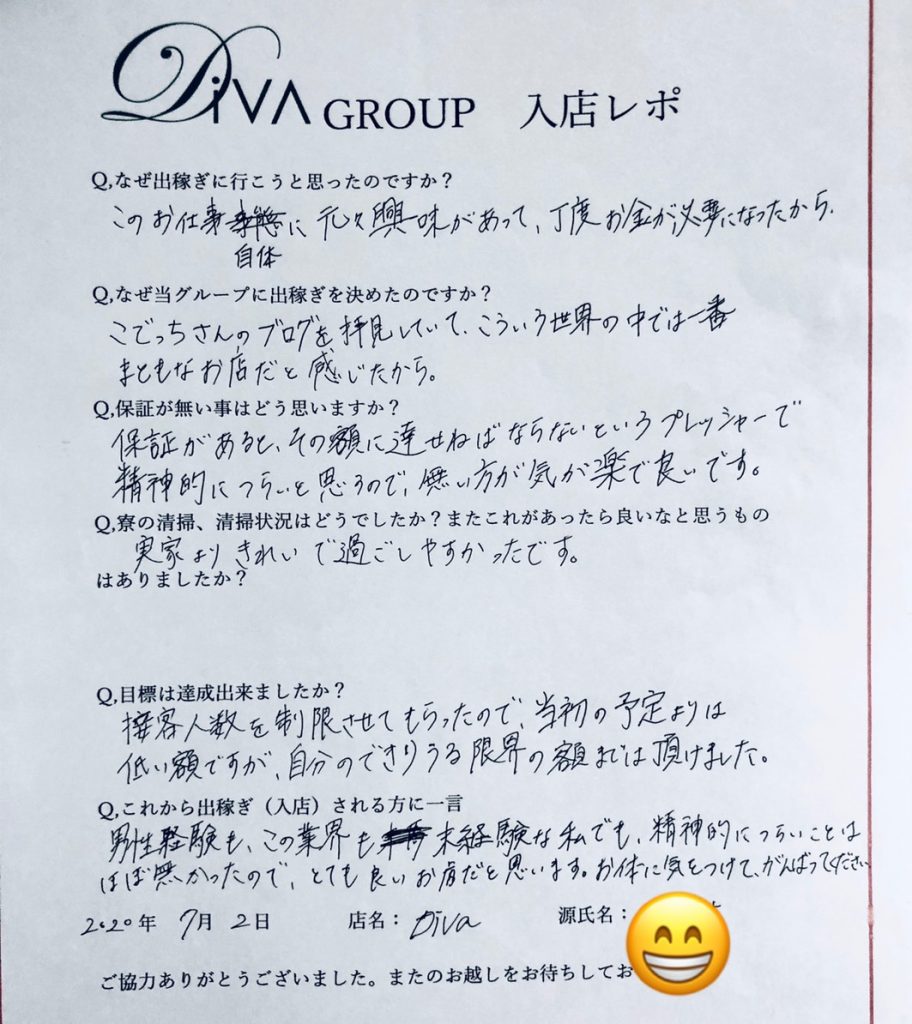 DiVA GROUP 入店レポ
Q,なぜ出稼ぎに行こうと思ったのですか？
このお仕事に元々興味があって、丁度お金が必要になったから.
自体
Q,なぜ当グループに出稼ぎを決めたのですか？
こでっちさんのブログを拝見していて、こういう世界の中では一番
まともなお店だと感じたから。
Q,保証が無い事はどう思いますか？
保証があると、その額に達せねばならないというプレッシャーで
精神的につらいと思うので、無い方が気が楽で良いです。
Q,寮の清掃、清掃状況はどうでしたか？またこれがあったら良いなと思うもの
実家よりきれいで過ごしやすかったです。
はありましたか？
Q,目標は達成出来ましたか？
接客人数を制限させてもらったので、当初の予定よりは
低い額ですが、自分のできりうる限界の額までは頂けました。
Q,これから出稼ぎ（入店）される方に一言
男性経験も、この業界も未経験な私でも、精神的につらいことは
ほぼ無かったので、とても良いお店だと思います。お体に気をつけて、がんばってください
2020年 7月 2日 店名： Diva 源氏名：
ご協力ありがとうございました。またのお越しをお待ちしてお